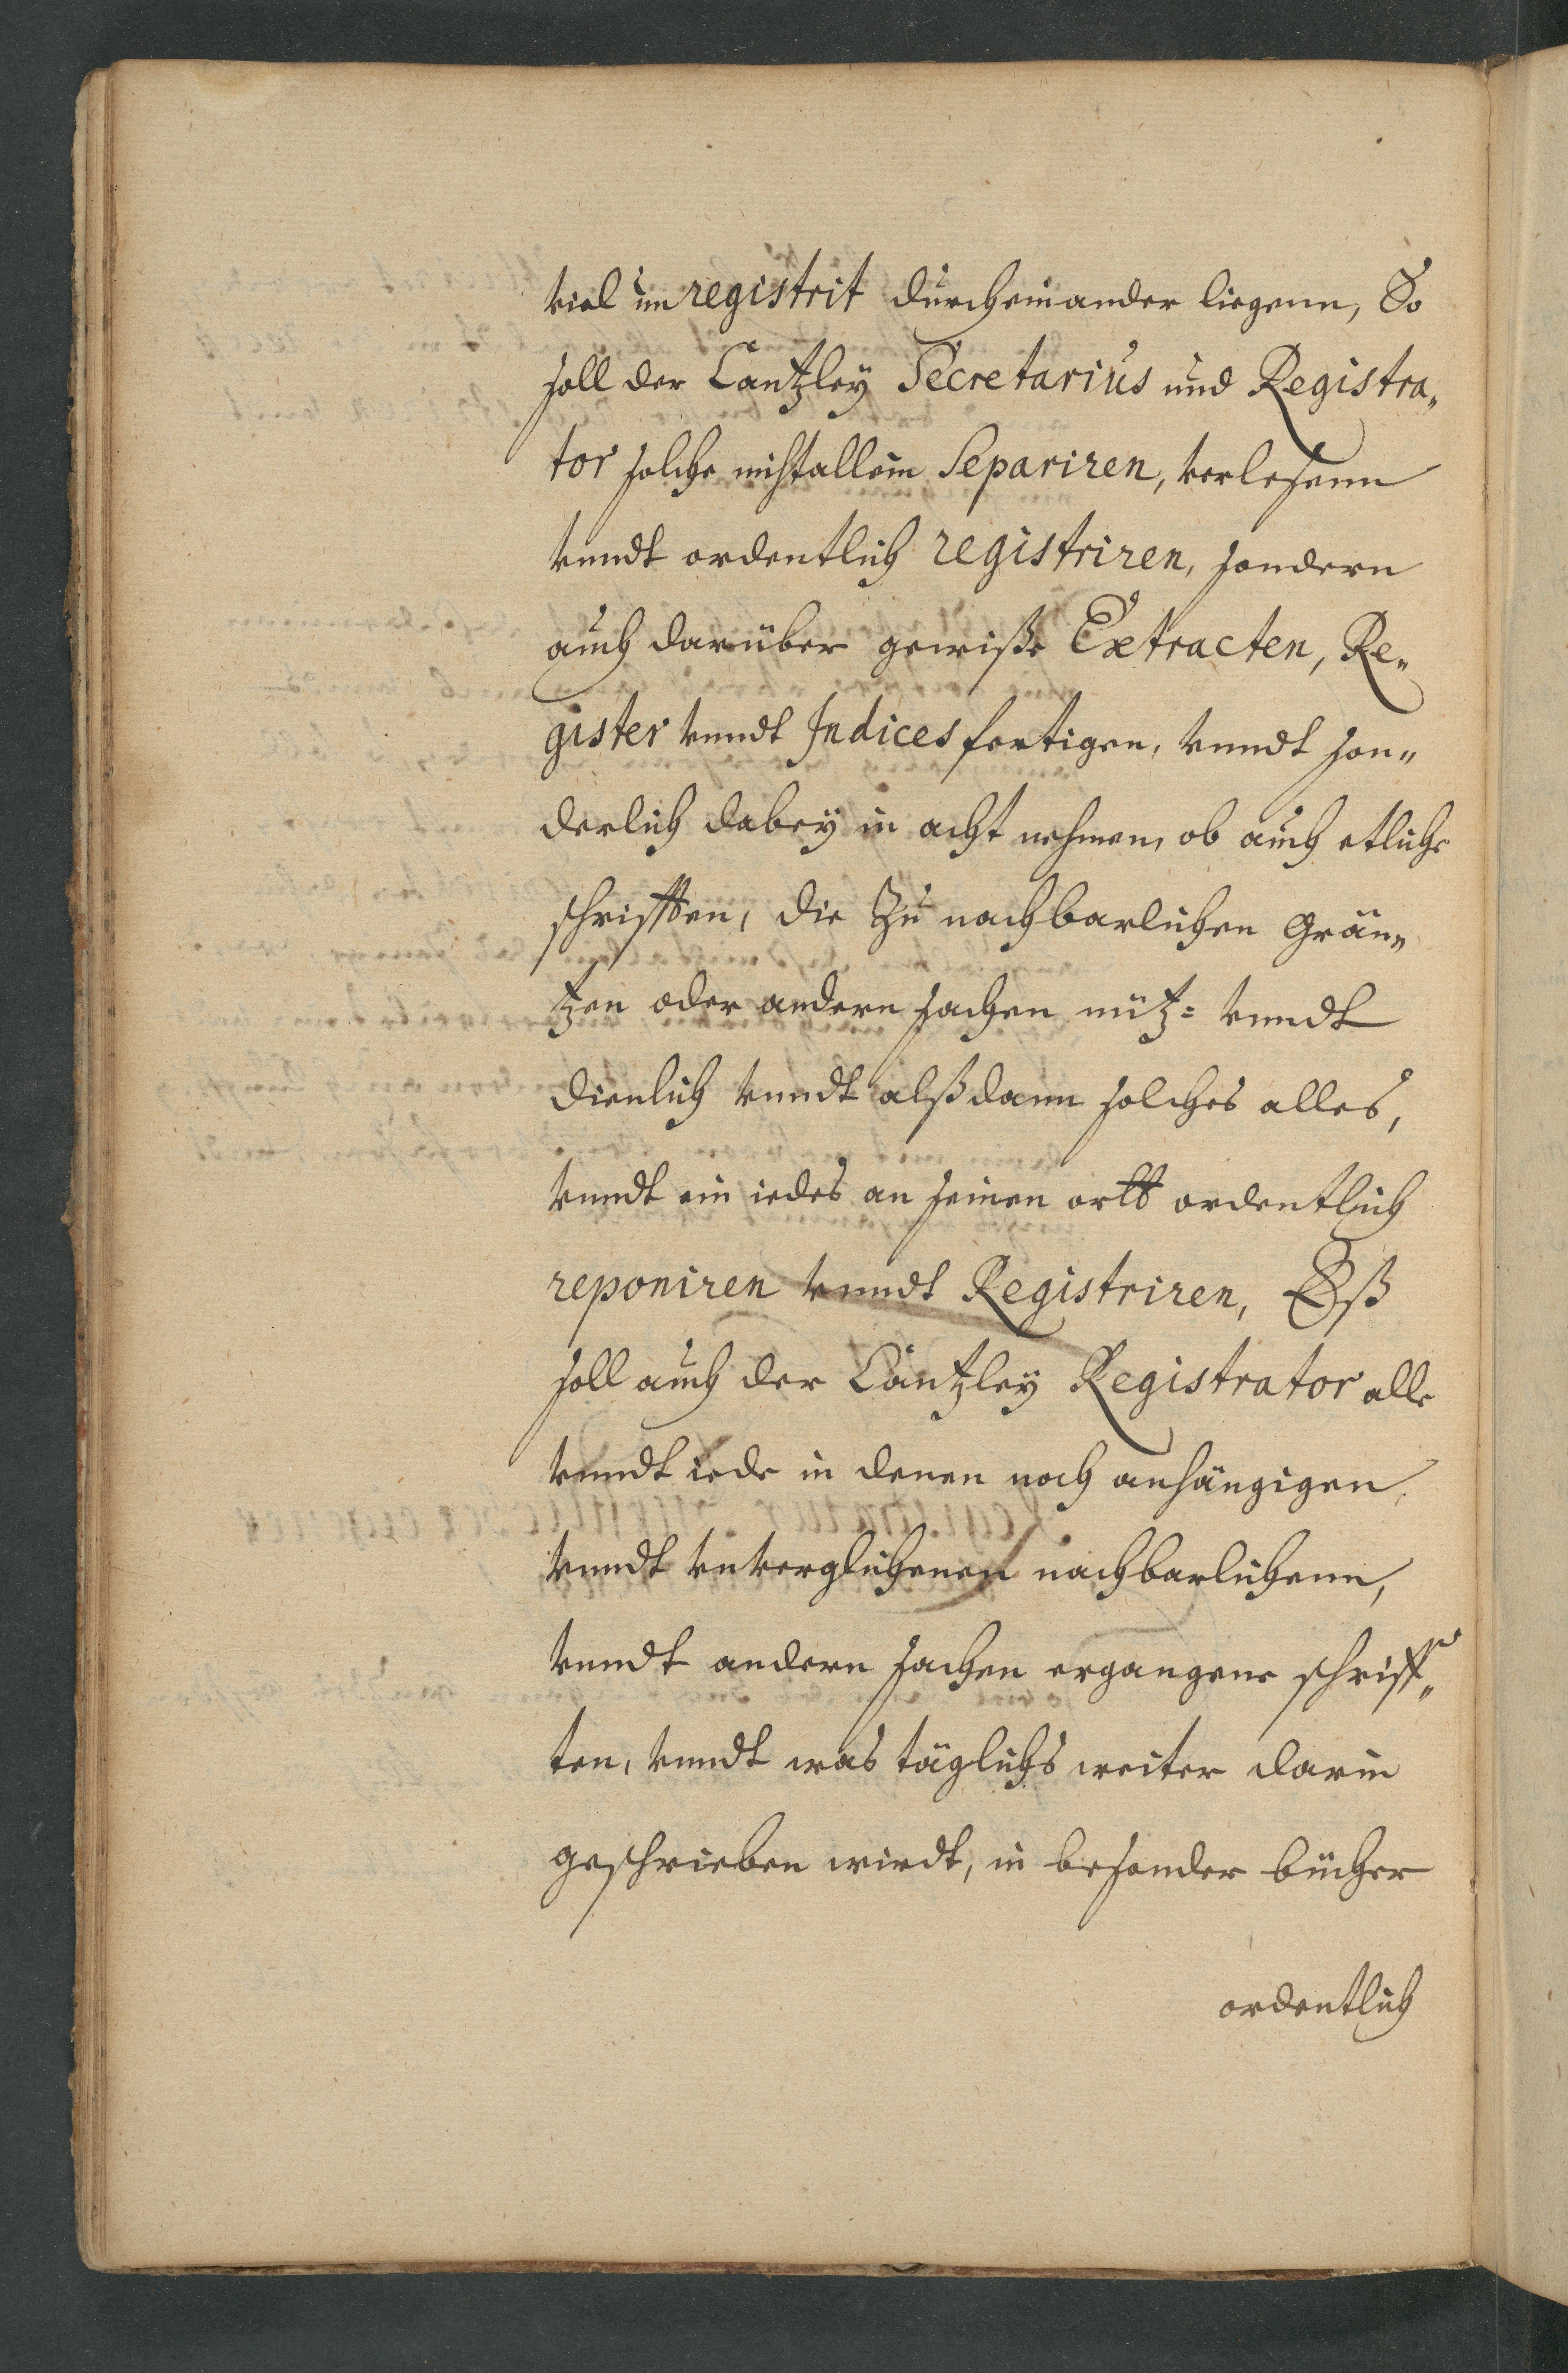 viel unregistrit durcheinander liegenn, So
soll der Cantzley Secretarius und Registra„
tor solche nichtallein Separiren, verlesenn
vnndt ordentlich registriren, sondern
auch darüber gewiße Extracten, Re„
gister vnndt Indices fertigen, vnndt son„
derlich dabeÿ in acht nehmen, ob auch etliche
schrifften, die Zu nachbarlichen Grän„
tzen oder andern sachen nütz= vnndt
dienlich vnndt alßdann solches alles,
vnndt ein iedes an seinen ortt ordentlich
reponiren vnndt Registriren, Eß
soll auch der Cantzleÿ Registrator alle
vnndt iede in denen noch anhängigen
vnndt vnverglichenen nachbarlichenn,
vnndt andern sachen ergangene schriff„
ten, vnndt was täglichs weiter darin
geschrieben wirdt, in besonder bücher
ordentlich